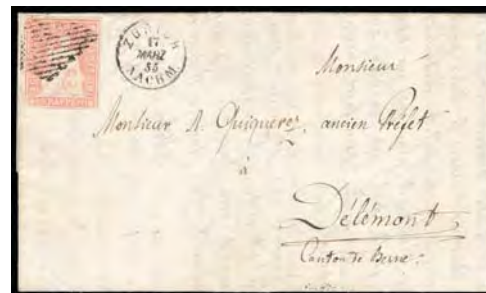 ZÜRICH
17
MÄRZ
55
NACHM.
Monsieur
Monsieur A. Quiquerez, ancien Préfet
à
Délémont,
Canton de Berne.